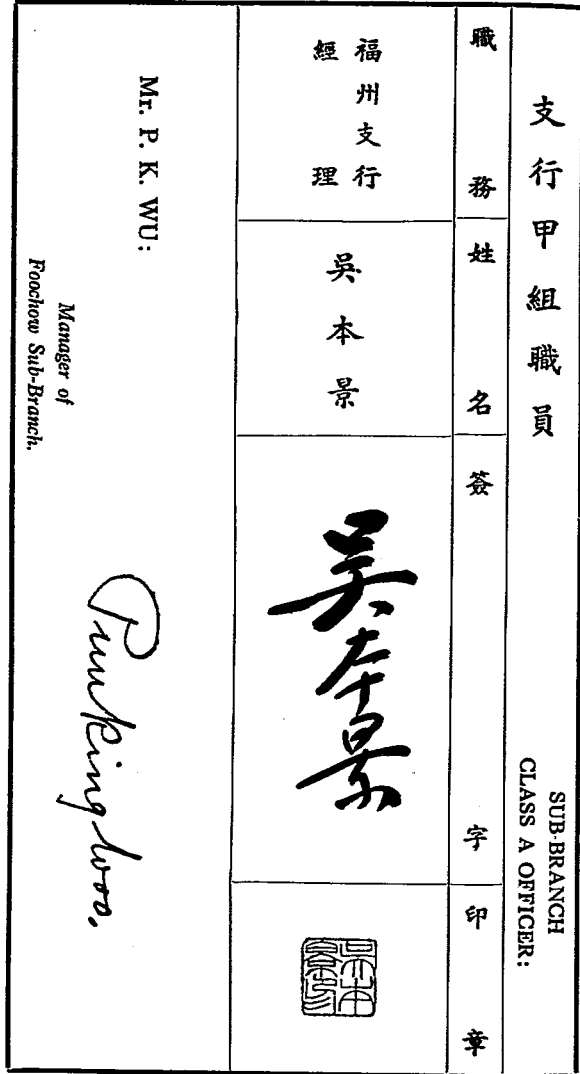 支行甲組職員
SUB-BRANCH
CLASS A OFFICER:
職務
姓名
簽字
印章
福州支行
經理
吳本景
吳本景
Mr. P. K. WU:
Manager of
Foochow Sub-Branch.